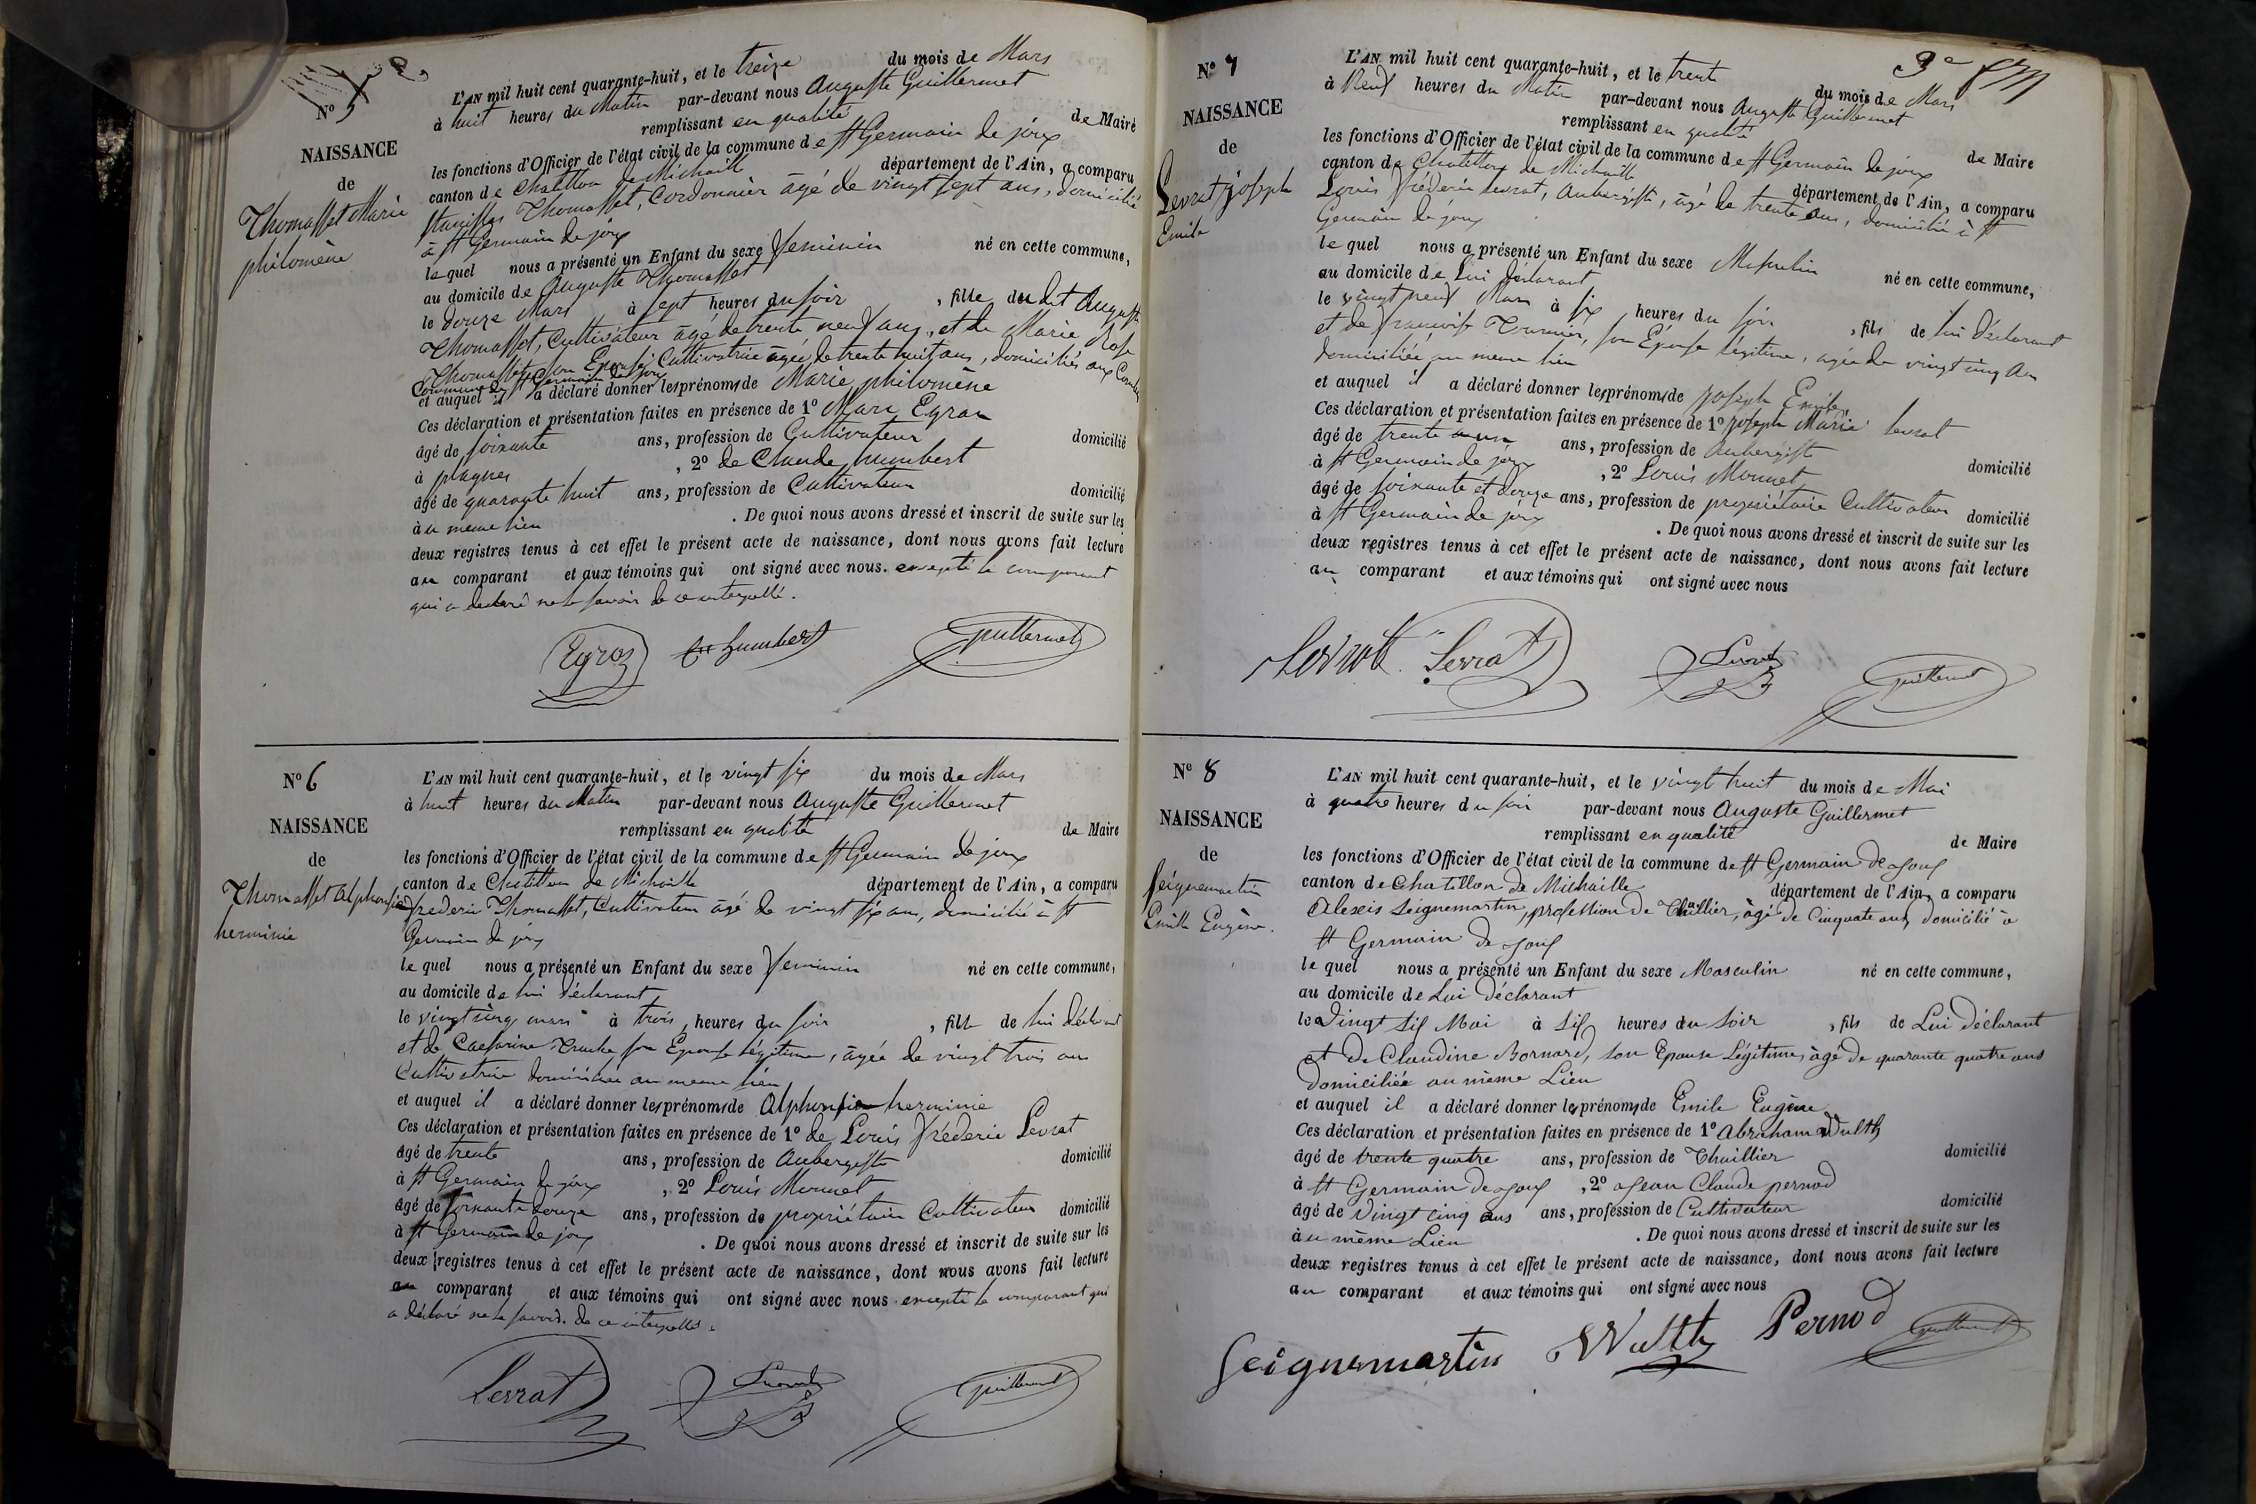 Nº 5
NAISSANCE
de
Thomasset Marie
philomène
L'AN mil huit cent quarante-huit, et le treize du mois de Mars
à huit heures du Matin par-devant nous Auguste Guillermet
remplissant en qualité de Maire
les fonctions d'Officier de l'état civil de la commune de St Germain de joux
canton de Chatillon de Michaille département de l'Ain, a comparu
Stanislas Thomasset, Cordonnier âgé de vingt sept ans, domicilié
à St Germain de joux
lequel nous a présenté un Enfant du sexe feminin né en cette commune,
au domicile de Auguste Thomasset
le douze Mars à sept heures du soir, fille du dit Auguste
Thomasset, Cultivateur âgé de trente neuf ans, et de Marie Rose
Thomasset, son Epouse, Cultivatrice âgée de trente huit ans, domiciliés aux
Commune de St Germain de joux
et auquel il a déclaré donner les prénoms de Marie philomène
Ces déclaration et présentation faites en présence de 1º Marc Egraz
âgé de soixante ans, profession de Cultivateur domicilié
à plagnes, 2º de Claude humbert
âgé de quarante huit ans, profession de Cultivateur domicilié
à u meme lieu . De quoi nous avons dressé et inscrit de suite sur les
deux registres tenus à cet effet le présent acte de naissance, dont nous avons fait lecture
au comparant et aux témoins qui ont signé avec nous. excepté le comparant
qui a declaré ne le savoir de ce interpellé.
Egraz humbert Guillermet
Nº 6
NAISSANCE
de
Thomasset alphonsine
herminie
L'AN mil huit cent quarante-huit, et le vingt six du mois de Mars
à huit heures du Matin par-devant nous Auguste Guillermet
remplissant en qualité de Maire
les fonctions d'Officier de l'état civil de la commune de St Germain de joux
canton de Chatillon de Michaille département de l'Ain, a comparu
frederic Thomasset, Cultivateur âgé de vingt six ans, domicilié à St
Germain de joux
le quel nous a présenté un Enfant du sexe feminin né en cette commune,
au domicile de lui déclarant
le vingt cinq mars à trois heures du soir, fille de lui déclarant
et de son Epouse légitime, âgée de vingt trois ans
Cultivatrice domiciliée au meme lieu
et auquel il a déclaré donner les prénoms de Alphonsine herminie
Ces déclaration et présentation faites en présence de 1º de Louis fréderic Levrat
âgé de trente ans, profession de Aubergiste domicilié
à St Germain de joux, 2º Louis Mounet
âgé de soixante douze ans, profession de propriétaire Cultivateur domicilié
à St Germain de joux . De quoi nous avons dressé et inscrit de suite sur les
deux registres tenus à cet effet le présent acte de naissance, dont nous avons fait lecture
au comparant et aux témoins qui ont signé avec nous excepté le comparant qui
a déclaré ne le savoir. de ce interpellé.
Levrat Guillermet
3e
Nº 7
NAISSANCE
de
Levrat joseph
Emile
L'AN mil huit cent quarante-huit, et le trente du mois de Mars
à Neuf heures du Matin par-devant nous Auguste Guillermet
remplissant en qualité de Maire
les fonctions d'Officier de l'état civil de la commune de St Germain de joux
canton de Chatillon de Michaille département de l'Ain, a comparu
Louis fréderic Levrat, Aubergiste, âgé de trente ans, domicilié à St
Germain de joux
le quel nous a présenté un Enfant du sexe Masculin né en cette commune,
au domicile de Lui déclarant
le vingt neuf Mars à six heures du soir, fils de lui déclarant
et de françoise Tournier, son Épouse légitime, agée de vingt cinq ans
domiciliée au meme lieu
et auquel il a déclaré donner les prénoms de joseph Emile
Ces déclaration et présentation faites en présence de 1º joseph Marie levrat
âgé de trente ans, profession de Aubergiste domicilié
à St Germain de joux, 2º Louis Mounet
âgé de soixante et douze ans, profession de propriétaire Cultivateur domicilié
à St Germain de joux . De quoi nous avons dressé et inscrit de suite sur les
deux registres tenus à cet effet le présent acte de naissance, dont nous avons fait lecture
au comparant et aux témoins qui ont signé avec nous
Levrat Levrat Guillermet
Nº 8
NAISSANCE
de
Seignemartin
Emile Eugène.
L'AN mil huit cent quarante-huit, et le vingt huit du mois de Mai
à quatre heures du soir par-devant nous Auguste Guillermet
remplissant en qualité de Maire
les fonctions d'Officier de l'état civil de la commune de St Germain de Joux
canton de Chatillon de Michaille département de l'Ain, a comparu
Alexis Seignemartin, profession de Thuillier, âgé de Cinquate ans, domicilié à
St Germain de Joux
le quel nous a présenté un Enfant du sexe Masculin né en cette commune,
au domicile de Lui déclarant
le Vingt Six Mai à Six heures du Soir, fils de Lui déclarant
et De Claudine Bornard, son Epouse Légitime, âgé de quarante quatre ans
Domiciliée au même Lieu
et auquel il a déclaré donner les prénoms de Emile Eugène
Ces déclaration et présentation faites en présence de 1º Abraham Wulth
âgé de trente quatre ans, profession de Thuillier domicilié
à St Germain de Joux, 2º Jean Claude pernod
âgé de Vingt cinq ans ans, profession de Cultivateur domicilié
à u même Lieu . De quoi nous avons dressé et inscrit de suite sur les
deux registres tenus à cet effet le présent acte de naissance, dont nous avons fait lecture
au comparant et aux témoins qui ont signé avec nous
Seignemartin Wulth Pernod Guillermet